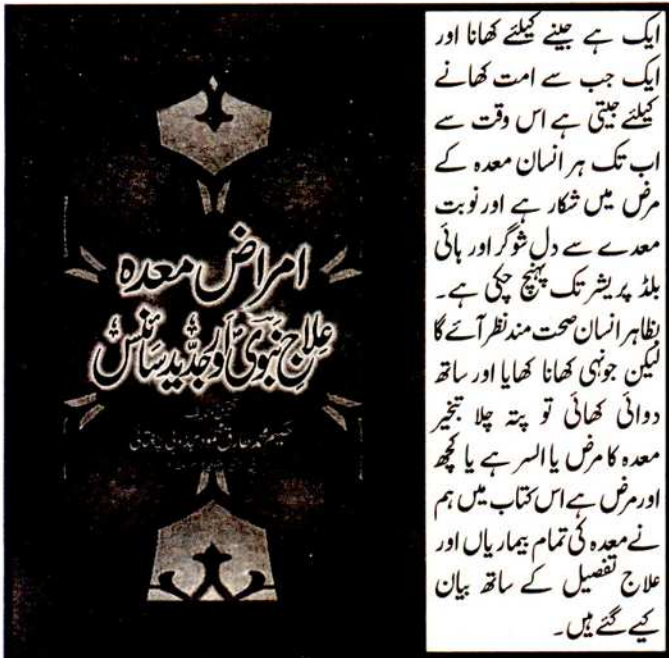 ایک ہے جینے کیلئے کھانا اور
ایک جب سے امت کھانے
کیلئے جیتی ہے اس وقت سے
اب تک ہر انسان معدہ کے
مرض میں شکار ہے اور نوبت
معدے سے دل شوگر اور ہائی
بلڈ پریشر تک پہنچ چکی ہے۔
بظاہر انسان صحت مند نظر آئے گا
لیکن جونہی کھانا کھایا اور ساتھ
دوائی کھائی تو پتہ چلا تبخیر
معدہ کا مرض یا السر ہے یا کچھ
اور مرض ہے اس کتاب میں ہم
نے معدہ کی تمام بیماریاں اور
علاج تفصیل کے ساتھ بیان
کیے گئے ہیں۔
امراض معدہ
علاج نبویؐ اور جدید سائنس
حکیم محمد طارق محمود